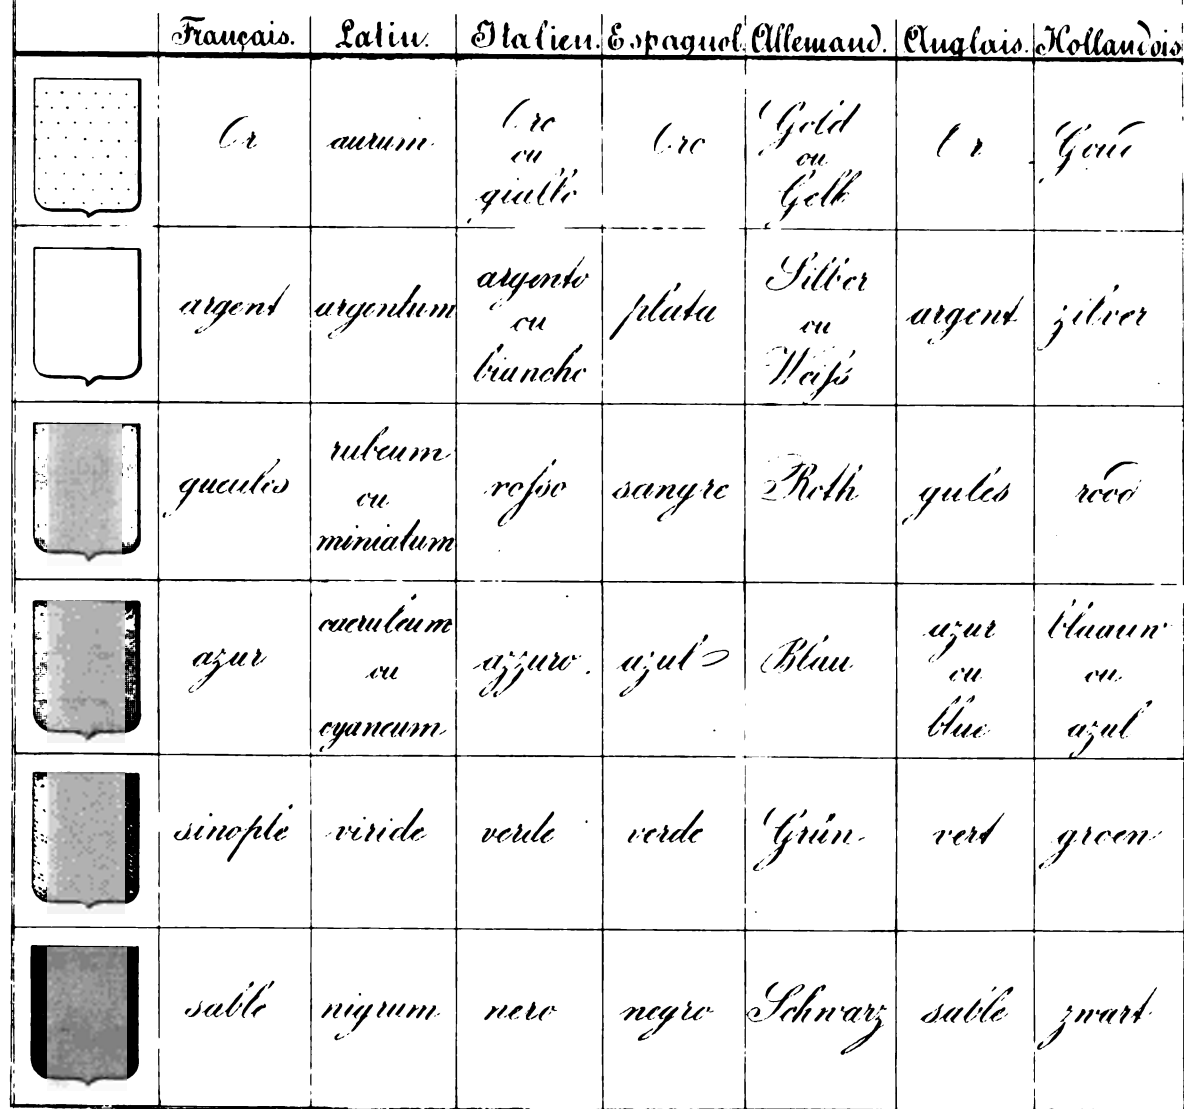 Français. Latin. Italien. Espagnol. Allemand. Anglais. Hollandois
Or aurum Oro ou giallo Oro Gold ou Gelb Or Goud
argent argentum argento ou biancho plata Silber ou Weiſs argent zilver
gueules rubeum ou miniatum roſso sangre Roth gules rood
azur caeruleum ou cyaneum azzuro. azul Blau azur ou blue blaauw ou azul
sinople viride verde verde Grün vert groen
sable nigrum nero negro Schwarz sable zwart